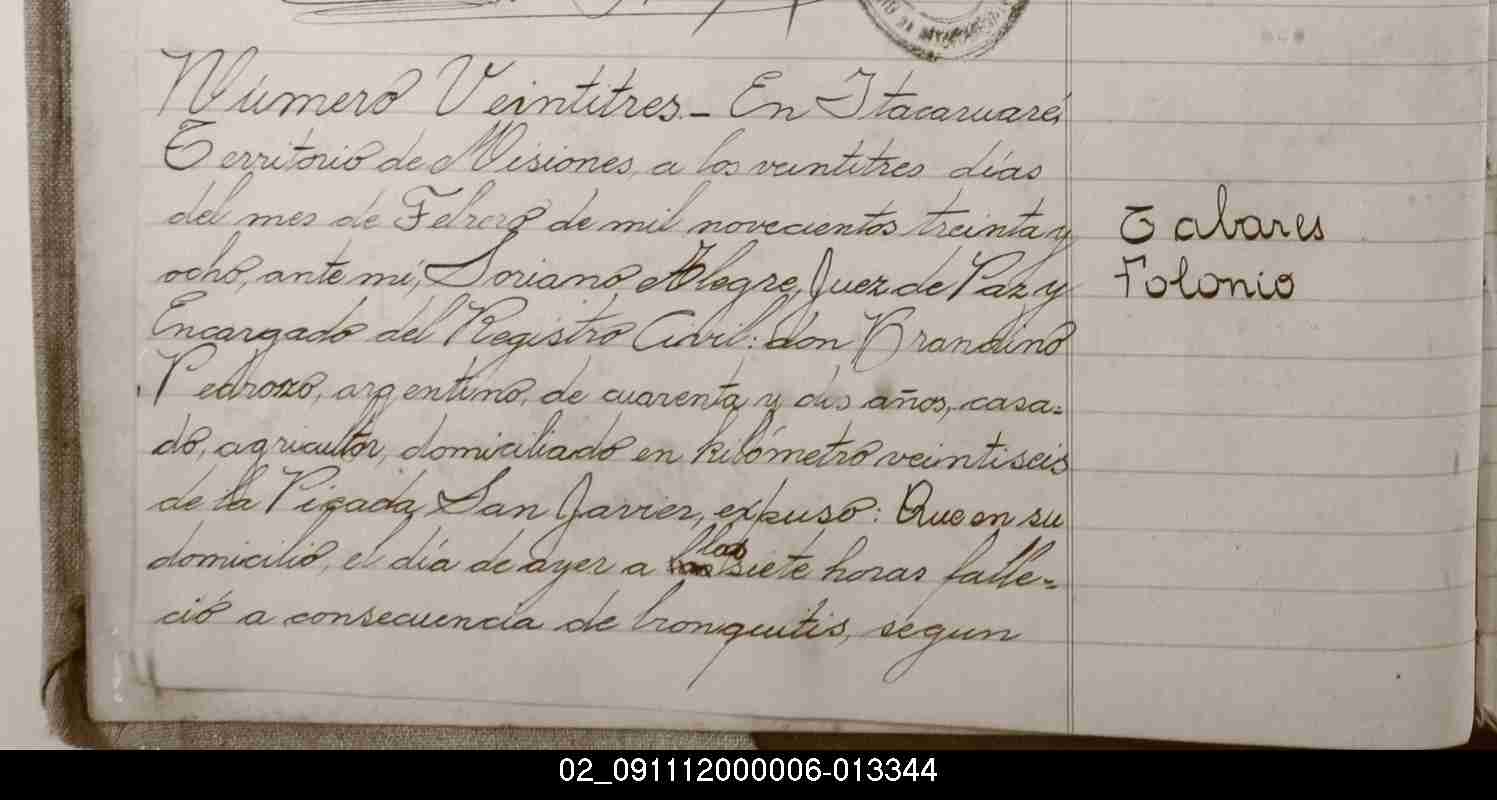 Número Veintitres_ En Itacaruaré,
Territorio de Misiones, a los veintitres días
del mes de Febrero de mil novecientos treinta y
ocho, ante mí, Soriano Alegre, Juez de Paz y
Encargado del Registro Civil: don Brandino
Pedrozo, argentino, de cuarenta y dos años, casa=
do, agricultor, domiciliado en kilómetro veintiseis
de la Picada San Javier, expuso: Que en su
domicilio, el día de ayer a las siete horas falle=
ció a consecuencia de bronquitis, segun
Tabares
Folonio
02_091112000006-013344